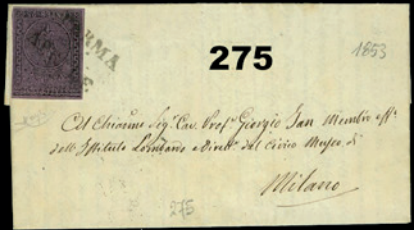 PARMA
275
1853
Al Chiarmo Sigr. Cav. Profr. Giorgio Jan Membro effo.
dell'Istituto Lombardo e Diretr. del Civico Museo di
Milano
275